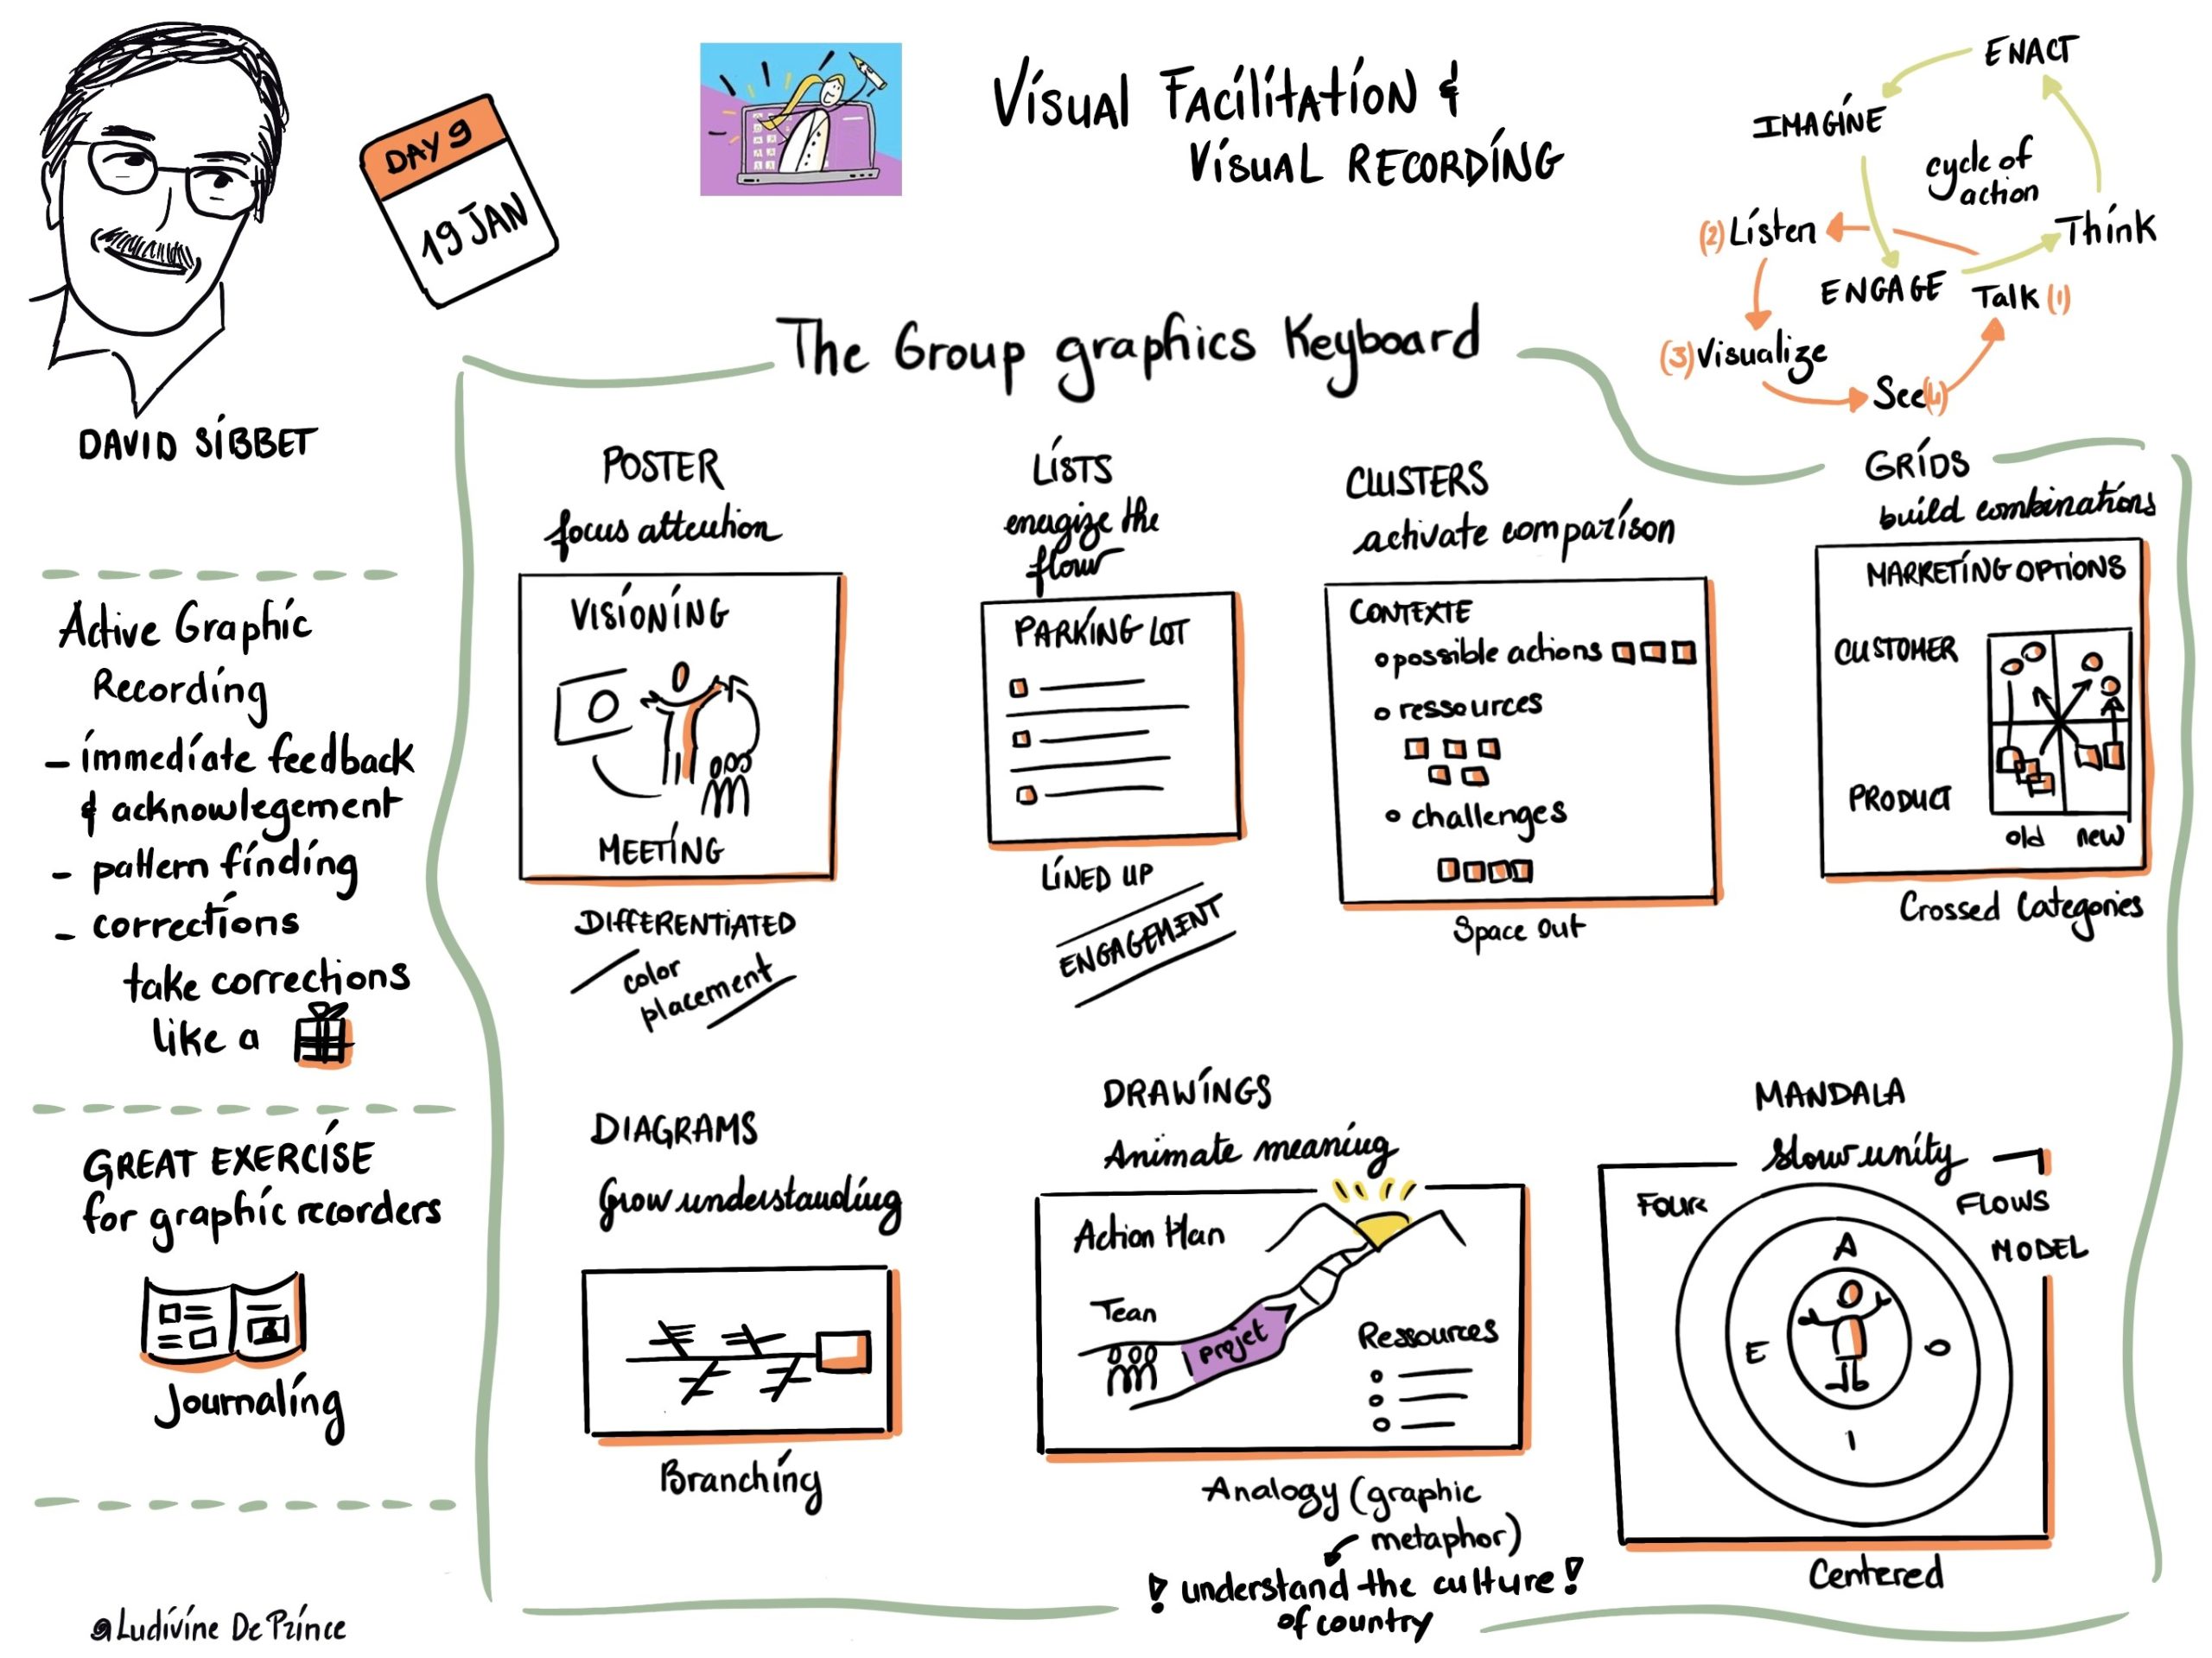 DAY 9
19 JAN
Visual Facilitation &
Visual Recording
ENACT
IMAGINE
cycle of
action
(2) Listen
Think
ENGAGE
Talk (1)
(3) Visualize
See (4)
DAVID SIBBET
The Group graphics Keyboard
Active Graphic
Recording
- immediate feedback
& acknowlegement
- pattern finding
- corrections
take corrections
like a
GREAT EXERCISE
for graphic recorders
Journaling
@Ludivine De Prince
POSTER
focus attention
VISIONING
MEETING
DIFFERENTIATED
color
placement
LISTS
enegize the
flow
PARKING LOT
LINED UP
ENGAGEMENT
CLUSTERS
activate comparison
CONTEXTE
o possible actions
o ressources
o challenges
Space Out
GRIDS
build combinations
MARKETING OPTIONS
CUSTOMER
PRODUCT
old new
Crossed Categories
DIAGRAMS
Grow understanding
Branching
DRAWINGS
Animate meaning
Action Plan
Team
Projet
Ressources
Analogy (graphic
metaphor)
! understand the culture !
of country
MANDALA
Show unity
FOUR
FLOWS
MODEL
A
E
O
I
Centered